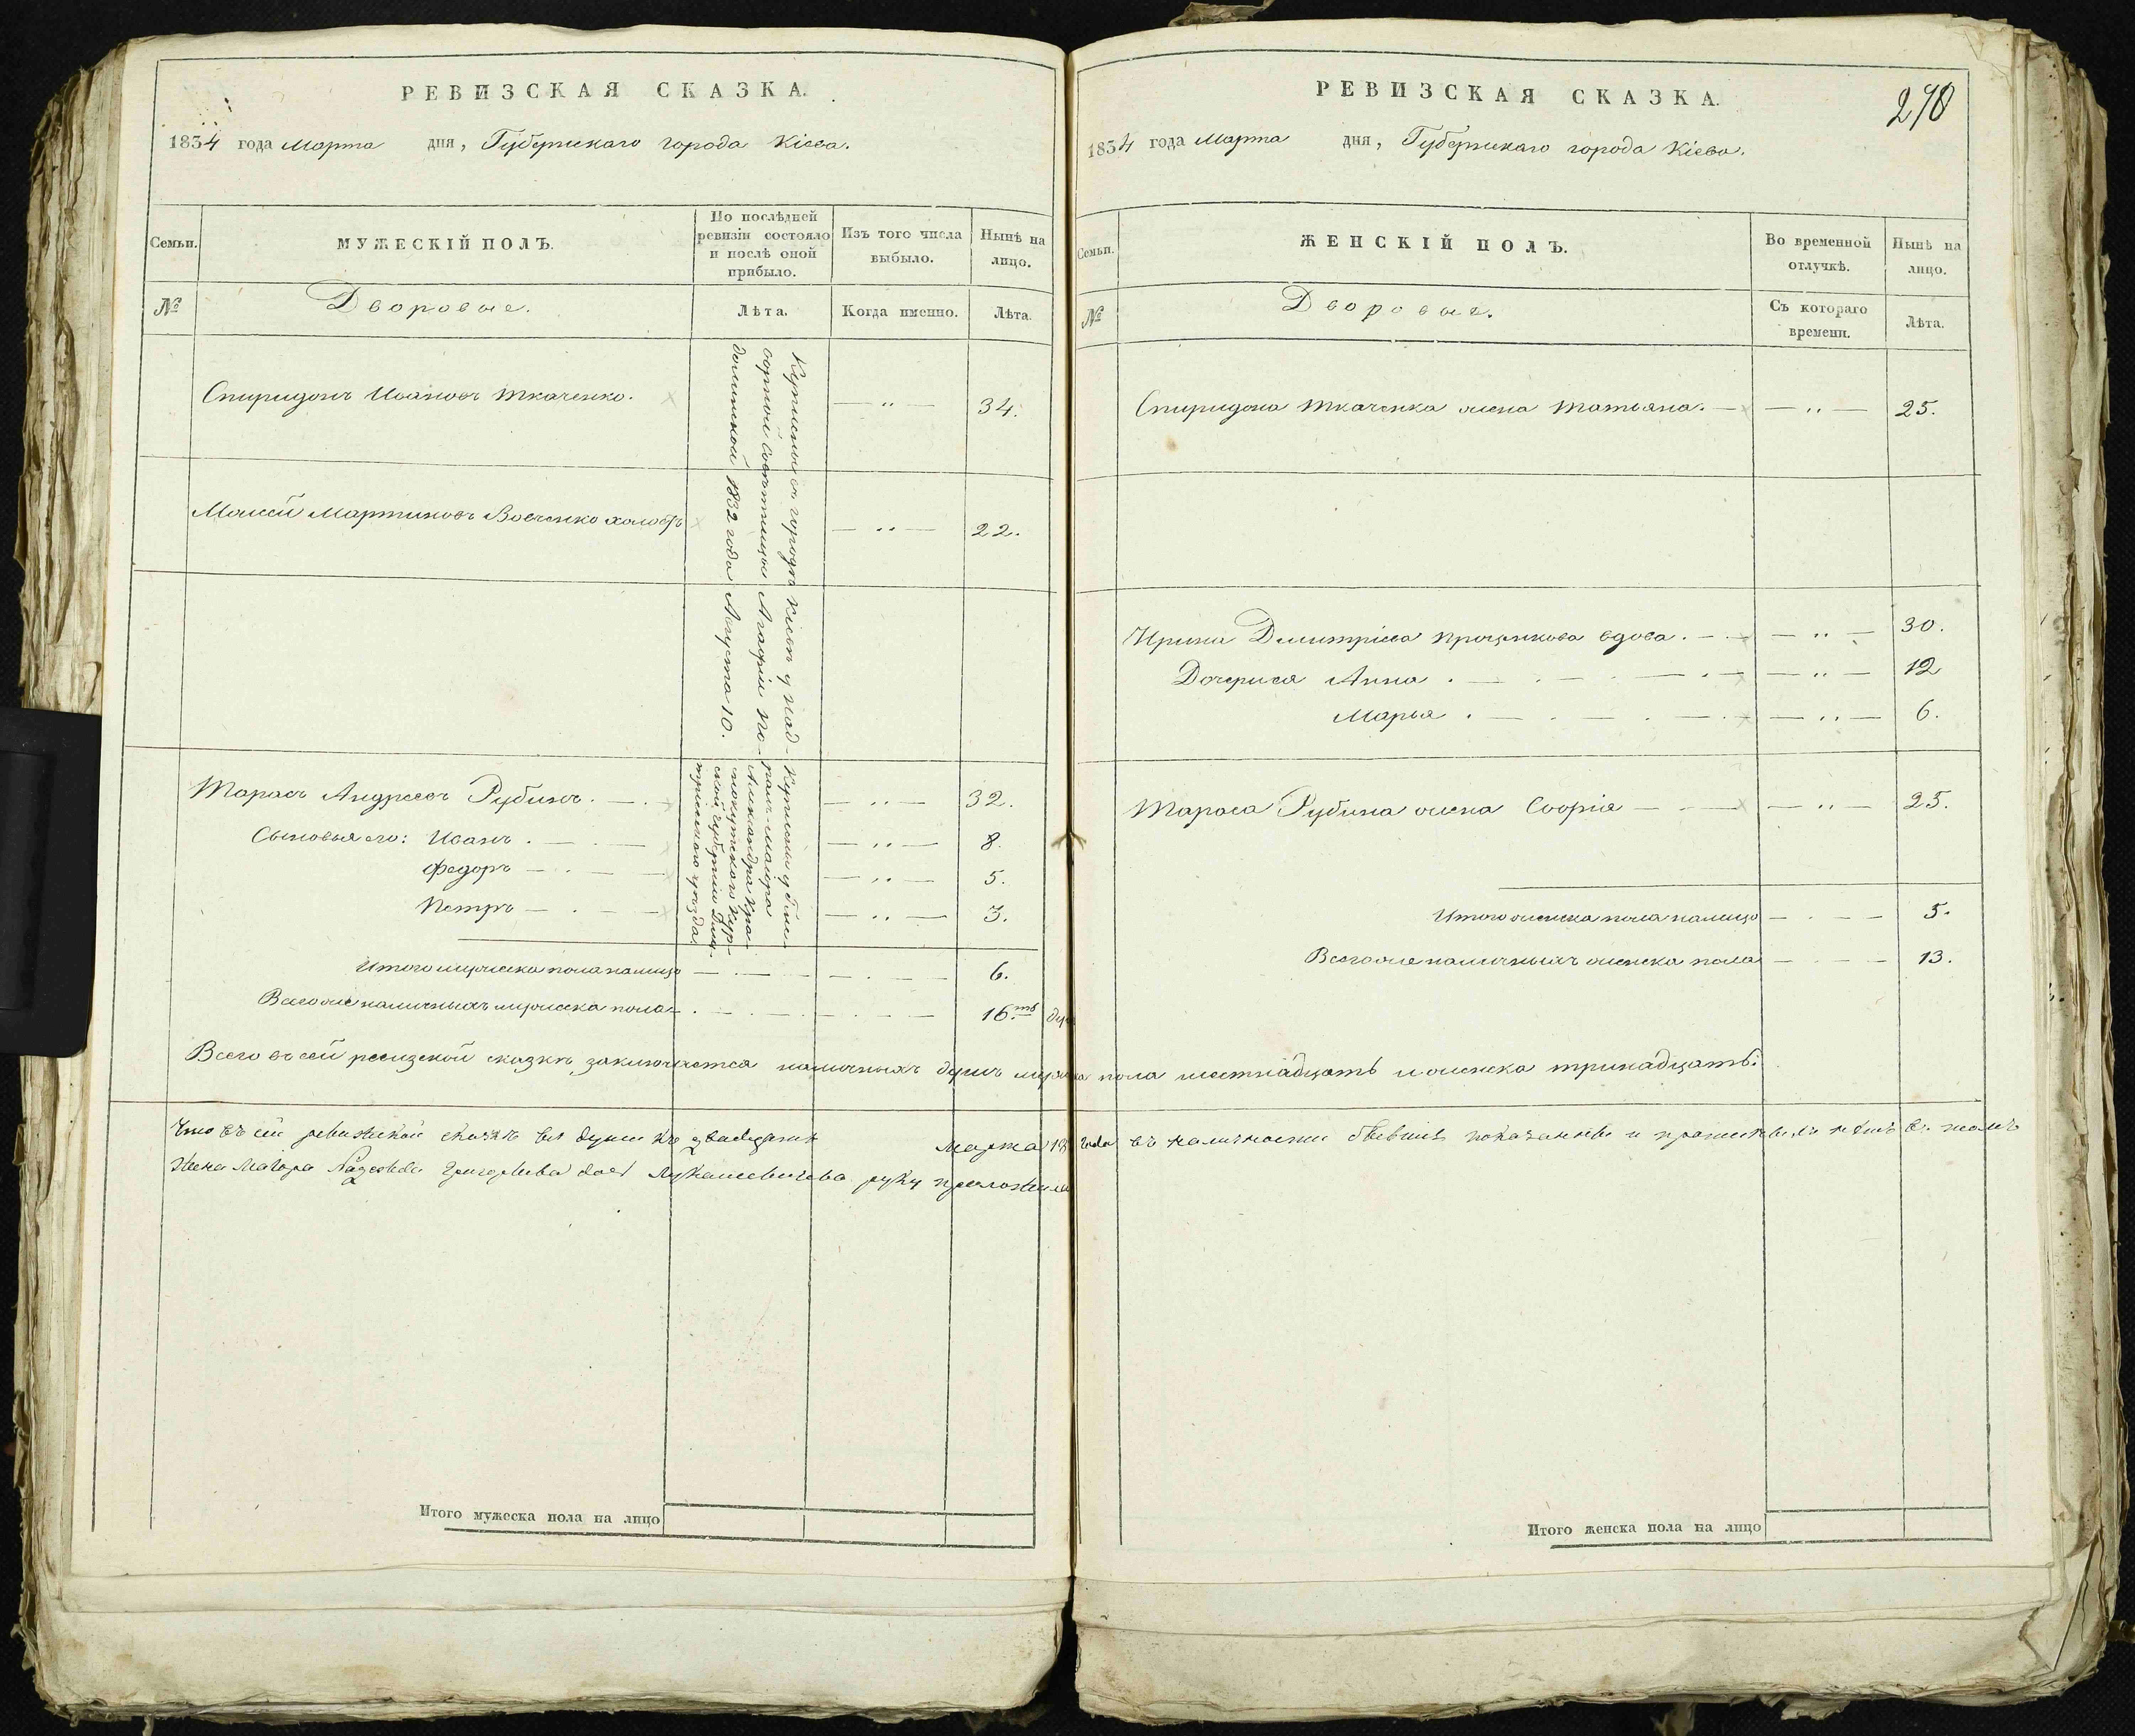 РЕВИЗСКАЯ СКАЗКА.
1834 года Марта дня, Губернскаго города Кіева.
Семьи.
МУЖЕСКІЙ ПОЛЪ.
По послѣдней ревизіи состояло и послѣ оной прибыло.
Изъ того числа выбыло.
Нынѣ на лицо.
№
Дворовые.
Лѣта.
Когда именно.
Лѣта.
Спиридонъ Ивановъ Ткаченко.
— „ —
34.
Купленные въ городѣ Кіевѣ у над-
ворной Совѣтницы Агафіи По-
1832 года Августа 10.
Моисей Мартиновъ Вовченко холостъ
— „ —
22.
Тарасъ Андреевъ Рубинъ. — .
— „ —
32.
Сыновья его: Иванъ . — . —
— „ —
8.
Федоръ — . —
— „ —
5.
Петръ — . —
— „ —
3.
Купленны у Гене-
ралъ-маіора
Александра
губерніи Дми-
тріевскаго уѣзда
Итого мужеска пола налицо
6.
Всего же наличныхъ мужеска пола
16.ть душ
Всего въ сей ревизской сказкѣ заключается наличныхъ душъ мужеска пола шестнадцать и женска тринадцать.
Что въ сей ревизской сказкѣ все души къ двадцать Марта 18 года въ наличности бывшие показанные и
Жена Маіора Надежда Григорьева дочь Лукашевичева руку приложила
Итого мужеска пола на лицо
РЕВИЗСКАЯ СКАЗКА.
270
1834 года Марта дня, Губернскаго города Кіева.
Семьи.
ЖЕНСКІЙ ПОЛЪ.
Во временной отлучкѣ.
Нынѣ на лицо.
№
Дворовые.
Съ котораго времени.
Лѣта.
Спиридона Ткаченка жена Татьяна. —
— „ —
25.
Ирина Димитріева Проценкова вдова. —
— „ —
30.
Дочери ея Анна . — . — . —
— „ —
12
Марья . — . — . —
— „ —
6.
Тараса Рубина жена Софія — . —
— „ —
25.
Итого женска пола налицо — . — —
5.
Всего же наличныхъ женска пола — . — —
13.
Итого женска пола на лицо